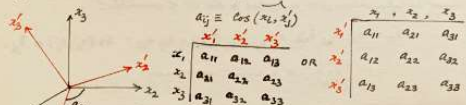 a_ij ≡ Cos (x_i, x_j')
x_3
x_3'
x_2'
x_2
x_1' x_2' x_3'
x_1 a_11 a_12 a_13
x_2 a_21 a_22 a_23
x_3 a_31 a_32 a_33
OR
x_1, x_2, x_3
x_1' a_11 a_21 a_31
x_2' a_12 a_22 a_32
x_3' a_13 a_23 a_33